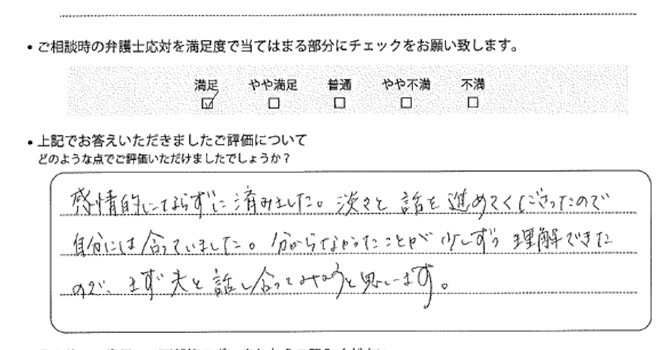 • ご相談時の弁護士応対を満足度で当てはまる部分にチェックをお願い致します。
満足 やや満足 普通 やや不満 不満
☑ □ □ □ □
• 上記でお答えいただきましたご評価について
どのような点でご評価いただけましたでしょうか?
感情的にならずに済みました。淡々と話を進めてくださったので
自分には合っていました。分からなかったことが少しずつ理解できた
ので、まず夫と話し合ってみようと思います。